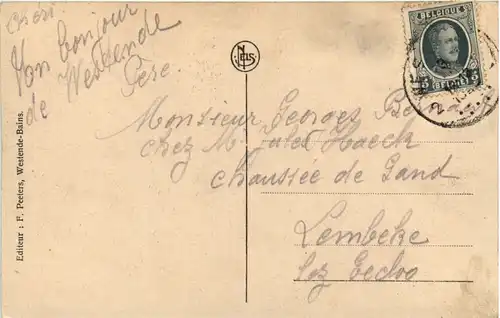 Bon bonjour
de Westende
Père
Editeur : F. Peeters, Westende-Bains.
NELS
BELGIQUE
5 5
BELGIË
Monsieur Georges
chez M. Jules Haeck
chaussée de Gand
Lembeke
lez Eecloo